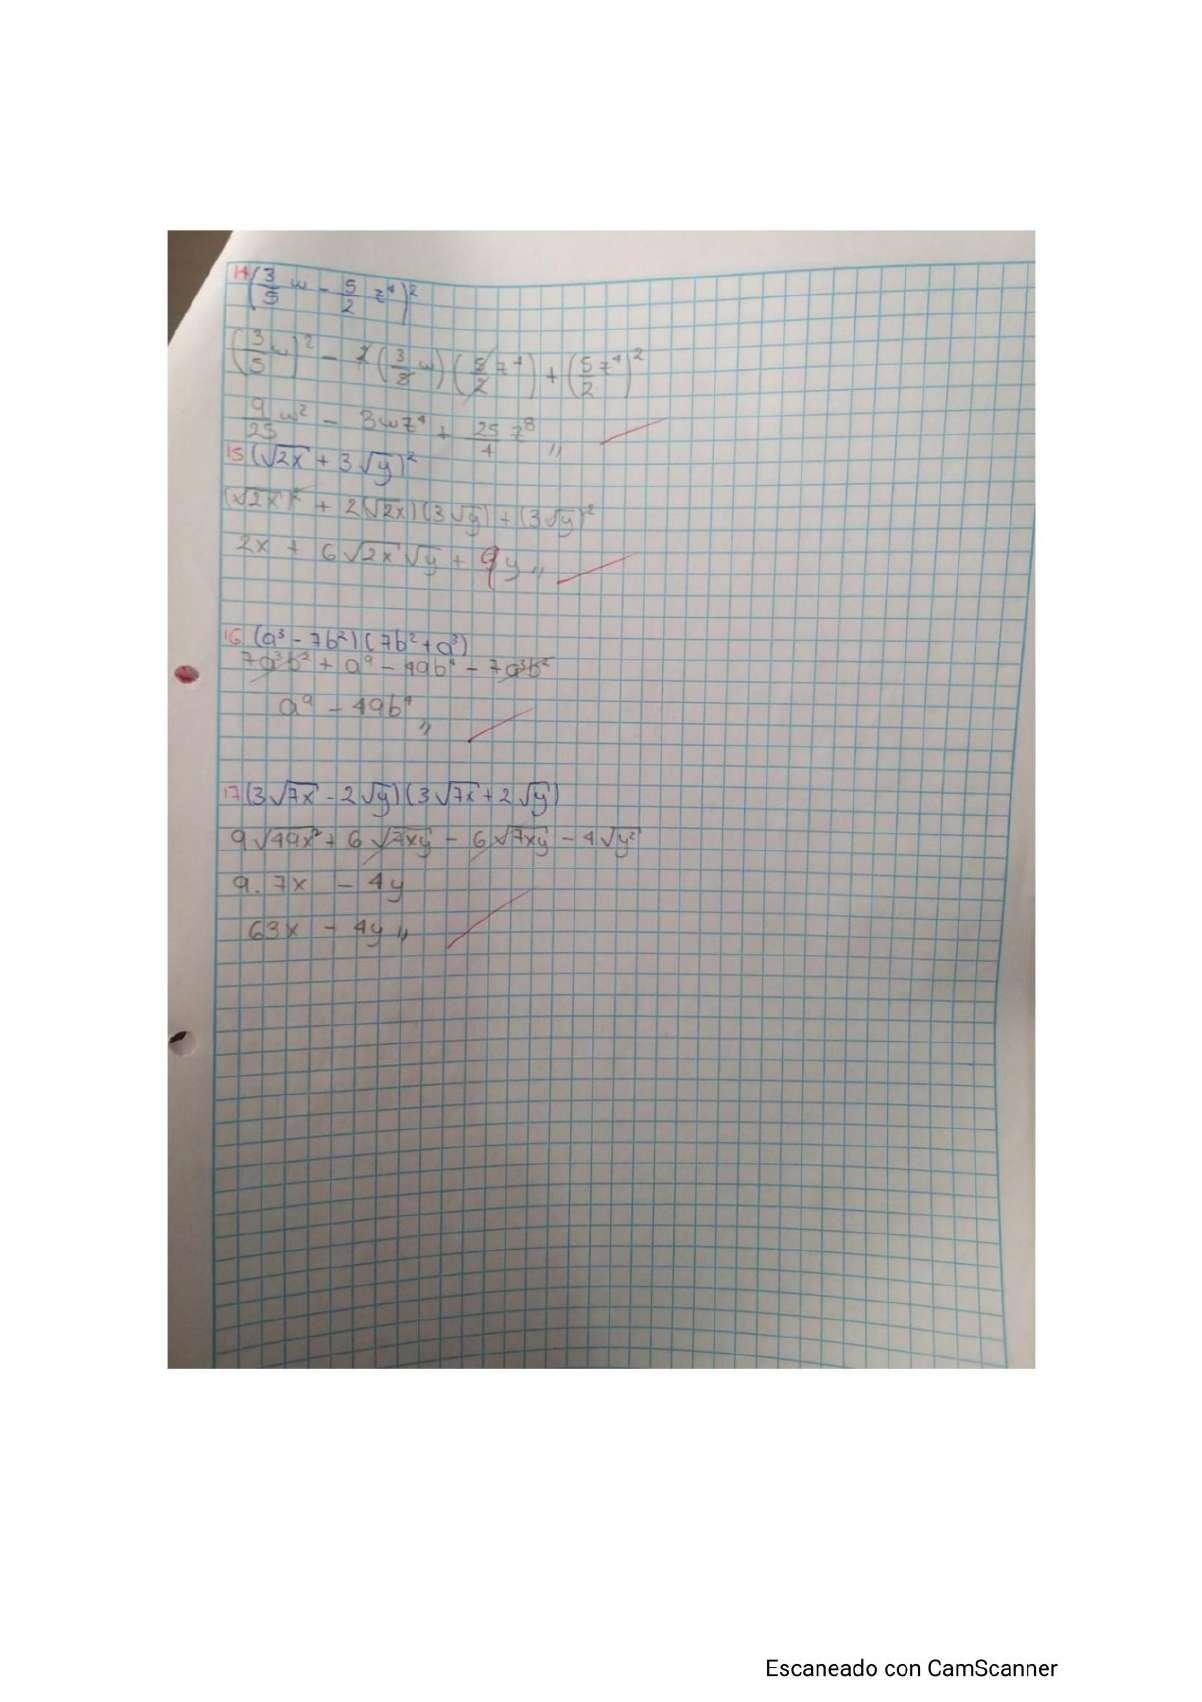 14 (3/5 w - 5/2 z⁴)²
(3/5 w)² - 2(3/5 w)(5/2 z⁴) + (5/2 z⁴)²
9/25 w² - 3wz⁴ + 25/4 z⁸ //
15 (√2x + 3√y)²
(√2x)² + 2(√2x)(3√y) + (3√y)²
2x + 6√2x √y + 9y //
16 (a³ - 7b²)(7b² + a³)
7a³b² + a⁹ - 49b⁴ - 7a³b²
a⁹ - 49b⁴ //
17 (3√7x - 2√y)(3√7x + 2√y)
9√49x² + 6√7xy - 6√7xy - 4√y²
9. 7x - 4y
63x - 4y //
Escaneado con CamScanner